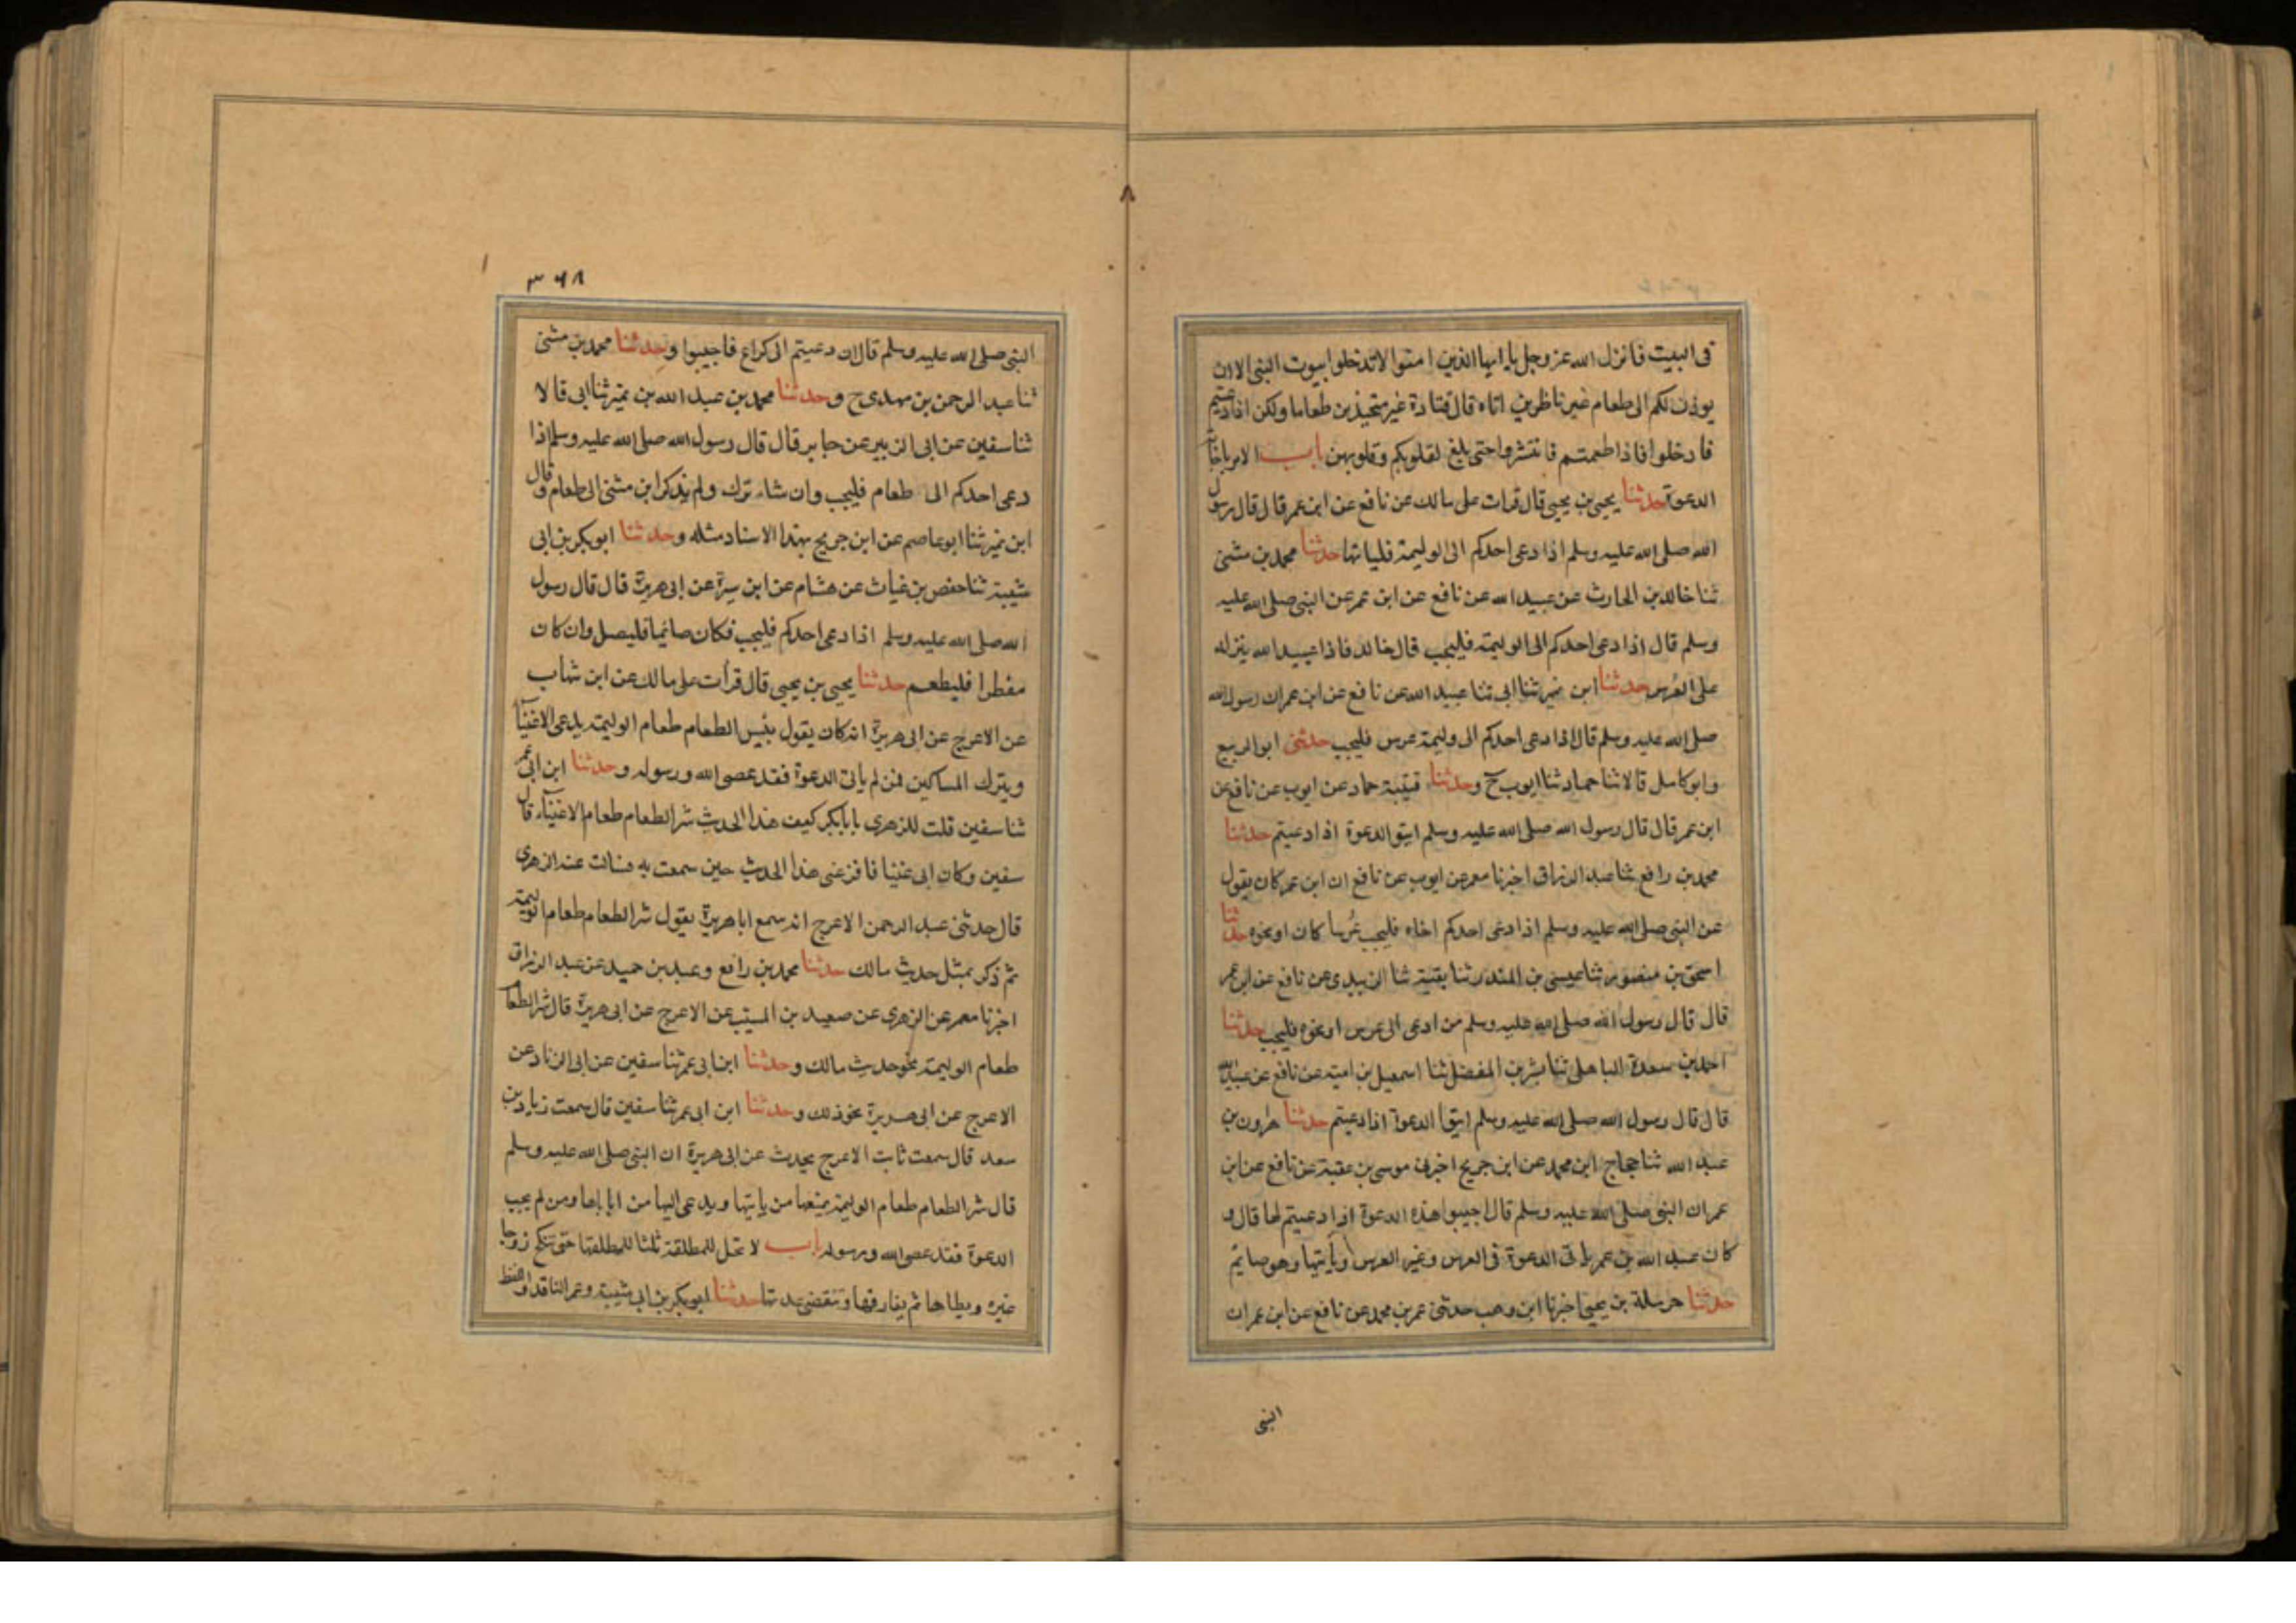 فى البيت فانزل الله عز وجل يا ايها الذين امنوا لا تدخلوا بيوت النبى الا ان
يوذن لكم الى طعام غير ناظرين اناه قال قتادة غير متحينين طعاما ولكن اذا دعيتم
فادخلوا فاذا طعمتم فانتشروا حتى بلغ لقلوبكم وقلوبهن باب الامر باجابة
الدعوة حدثنا يحيى بن يحيى قال قرات على مالك عن نافع عن ابن عمر قال قال رسول
الله صلى الله عليه وسلم اذا دعى احدكم الى الوليمة فلياتها حدثنا محمد بن مثنى
ثنا خالد بن الحارث عن عبيد الله عن نافع عن ابن عمر عن النبى صلى الله عليه
وسلم قال اذا دعى احدكم الى الوليمة فليجب قال خالد فاذا عبيد الله ينزله
على العُرس حدثنا ابن نمير ثنا ابى ثنا عبيد الله عن نافع عن ابن عمر ان رسول الله
صلى الله عليه وسلم قال اذا دعى احدكم الى وليمة عرس فليجب حدثنى ابو الربيع
وابو كامل قالا ثنا حماد ثنا ايوب ح وحدثنا قتيبة حماد عن ايوب عن نافع عن
ابن عمر قال قال رسول الله صلى الله عليه وسلم ايتوا الدعوة اذا دعيتم حدثنا
محمد بن رافع ثنا عبد الرزاق اخبرنا معمر عن ايوب عن نافع ان ابن عمر كان يقول
عن النبى صلى الله عليه وسلم اذا دعى احدكم اخاه فليجب عُرسا كان او نحوه حدثنا
اسحق بن منصور ثنا عيسى بن المنذر ثنا بقية ثنا الزبيدى عن نافع عن ابن عمر
قال قال رسول الله صلى الله عليه وسلم من ادعى الى عرس او نحوه فليجب حدثنا
احمد بن سعدة الباهلى ثنا بشر بن المفضل ثنا اسمعيل بن امية عن نافع عن عبد الله
قال قال رسول الله صلى الله عليه وسلم ايتوا الدعوة اذا دعيتم حدثنا هرون بن
عبد الله ثنا حجاج ابن محمد عن ابن جريج اخبرنى موسى بن عقبة عن نافع عن ابن
عمر ان النبى صلى الله عليه وسلم قال اجيبوا هذه الدعوة اذا دعيتم لها قال و
كان عبد الله بن عمر ياتى الدعوة فى العرس وغير العرس وياتيها وهو صايم
حدثنا حرملة بن يحيى اخبرنا ابن وهب حدثنى عمر بن محمد عن نافع عن ابن عمر ان
النبى
٣٦٨
النبى صلى الله عليه وسلم قال ان دعيتم الى كراع فاجيبوا وحدثنا محمد بن مثنى
ثنا عبد الرحمن بن مهدى ح وحدثنا محمد بن عبد الله بن نمير ثنا ابى قالا
ثنا سفين عن ابى الزبير عن جابر قال قال رسول الله صلى الله عليه وسلم اذا
دعى احدكم الى طعام فليجب وان شاء ترك ولم يذكر ابن مثنى الى طعام وقال
ابن نمير ثنا ابو عاصم عن ابن جريج بهذا الاسناد مثله وحدثنا ابو بكر بن ابى
شيبة ثنا حفص بن غياث عن هشام عن ابن سيرة عن ابى هريرة قال قال رسول
الله صلى الله عليه وسلم اذا دعى احدكم فليجب فكان صائما فليصل وان كان
مفطرا فليطعم حدثنا يحيى بن يحيى قال قرأت على مالك عن ابن شهاب
عن الاعرج عن ابى هريرة انه كان يقول بئيس الطعام طعام الوليمة يدعى الاغنيآ
ويترك المساكين فمن لم ياتى الدعوة فقد عصى الله ورسوله وحدثنا ابن ابى عمر
ثنا سفين قلت للزهرى يابا بكر كيف هذا الحديث شر الطعام طعام الاغنيآء قال
سفين وكان ابى غنيا فافزعنى هذا الحديث حين سمعت به فسالت عنه الزهرى
قال حدثنى عبد الرحمن الاعرج انه سمع ابا هريرة يقول شر الطعام طعام الوليمة
ثم ذكر بمثل حديث مالك حدثنا محمد بن رافع وعبد بن حميد عن عبد الرزاق
اخبرنا معمر عن الزهرى عن صعيد بن المسيب عن الاعرج عن ابى هريرة قال شر الطعام
طعام الوليمة نحو حديث مالك وحدثنا ابن ابى عمر ثنا سفين عن ابى الزناد عن
الاعرج عن ابى هريرة نحو ذلك وحدثنا ابن ابى عمر ثنا سفين قال سمعت زياد بن
سعد قال سمعت ثابت الاعرج يحدث عن ابى هريرة ان النبى صلى الله عليه وسلم
قال شر الطعام طعام الوليمة يمنعها من ياتيها ويدعى اليها من اباباها ومن لم يجب
الدعوة فقد عصى الله ورسوله باب لا تحل للمطلقة ثلثا للمطلقها حتى تنكح زوجا
غيره ويطاها ثم يفارقها وتنقضى عدتها حدثنا ابو بكر بن ابى شيبة وعمر الناقد واللفظ